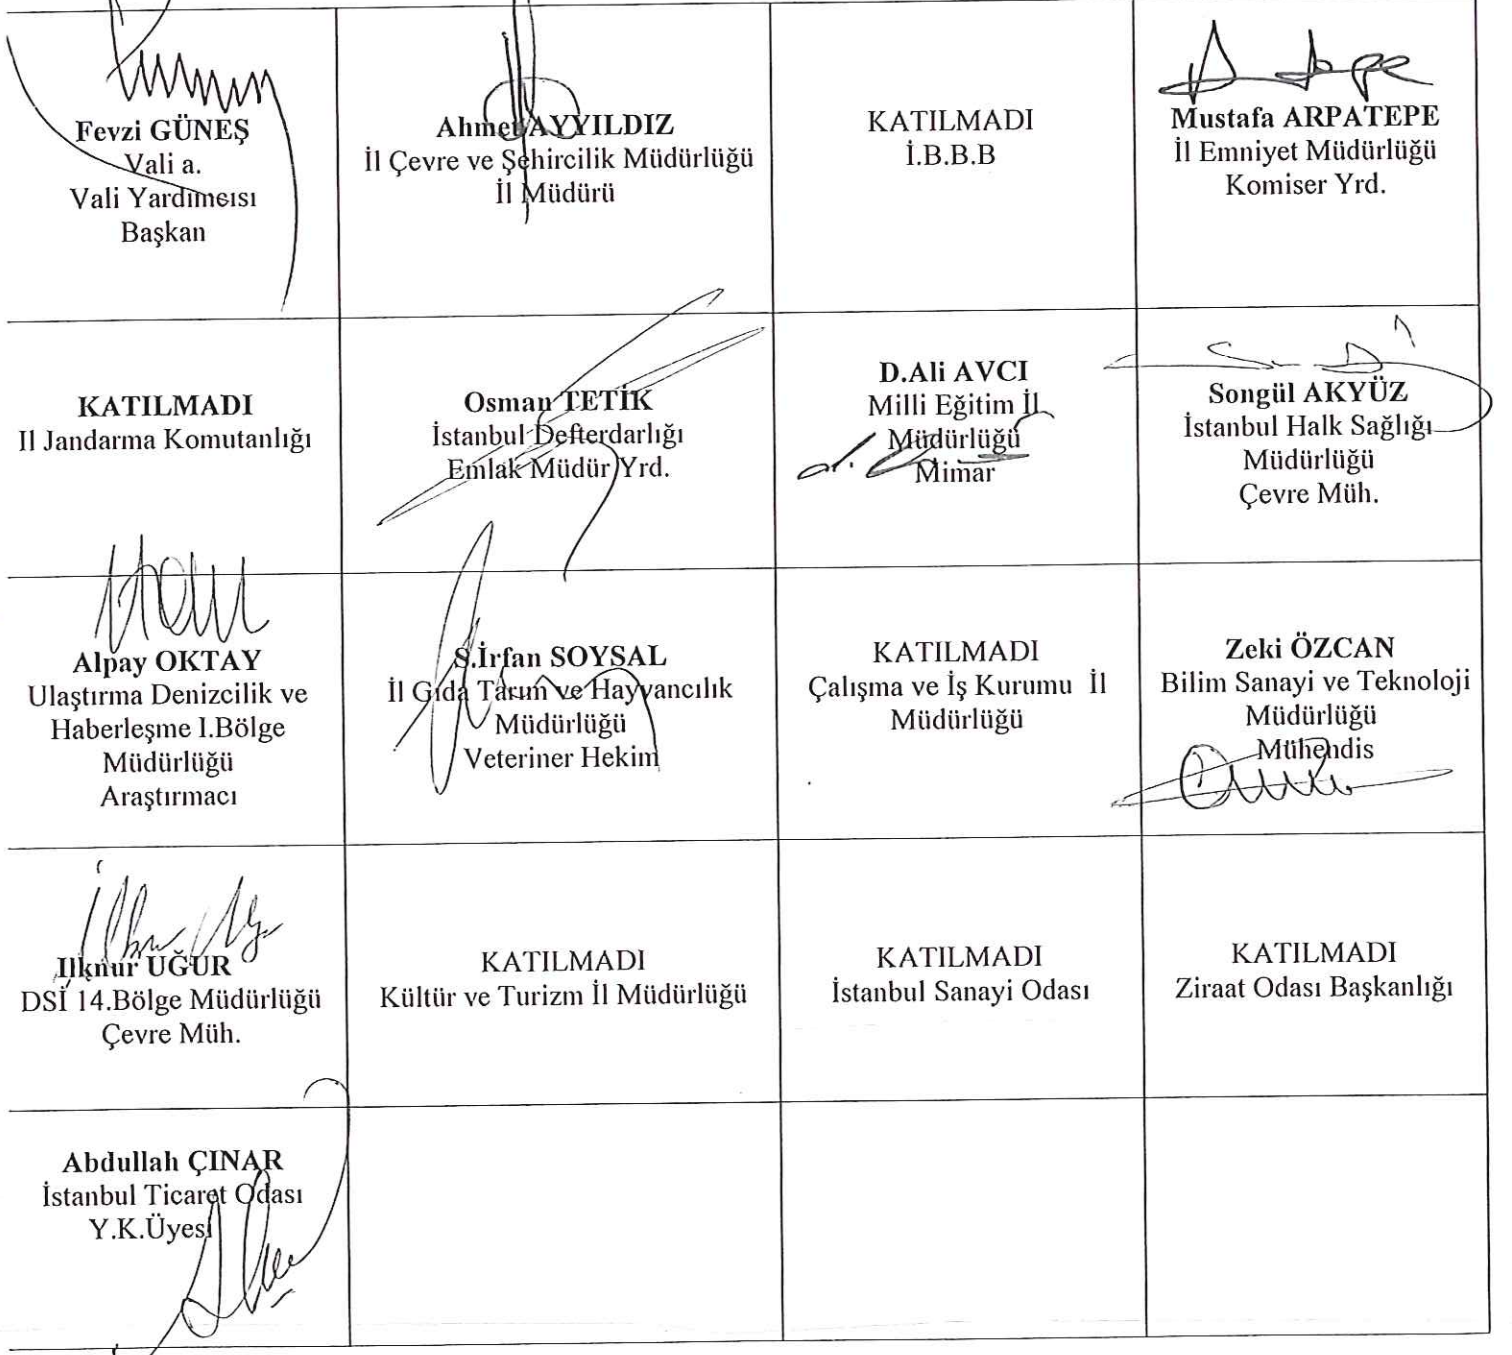 Fevzi GÜNEŞ
Vali a.
Vali Yardımcısı
Başkan
Ahmet AYYILDIZ
İl Çevre ve Şehircilik Müdürlüğü
İl Müdürü
KATILMADI
İ.B.B.B
Mustafa ARPATEPE
İl Emniyet Müdürlüğü
Komiser Yrd.
KATILMADI
Il Jandarma Komutanlığı
Osman TETİK
İstanbul Defterdarlığı
Emlak Müdür Yrd.
D.Ali AVCI
Milli Eğitim İl
Müdürlüğü
Mimar
Songül AKYÜZ
İstanbul Halk Sağlığı
Müdürlüğü
Çevre Müh.
Alpay OKTAY
Ulaştırma Denizcilik ve
Haberleşme I.Bölge
Müdürlüğü
Araştırmacı
S.İrfan SOYSAL
İl Gıda Tarım ve Hayvancılık
Müdürlüğü
Veteriner Hekim
KATILMADI
Çalışma ve İş Kurumu İl
Müdürlüğü
Zeki ÖZCAN
Bilim Sanayi ve Teknoloji
Müdürlüğü
Mühendis
Ilknur UĞUR
DSİ 14.Bölge Müdürlüğü
Çevre Müh.
KATILMADI
Kültür ve Turizm İl Müdürlüğü
KATILMADI
İstanbul Sanayi Odası
KATILMADI
Ziraat Odası Başkanlığı
Abdullah ÇINAR
İstanbul Ticaret Odası
Y.K.Üyesi